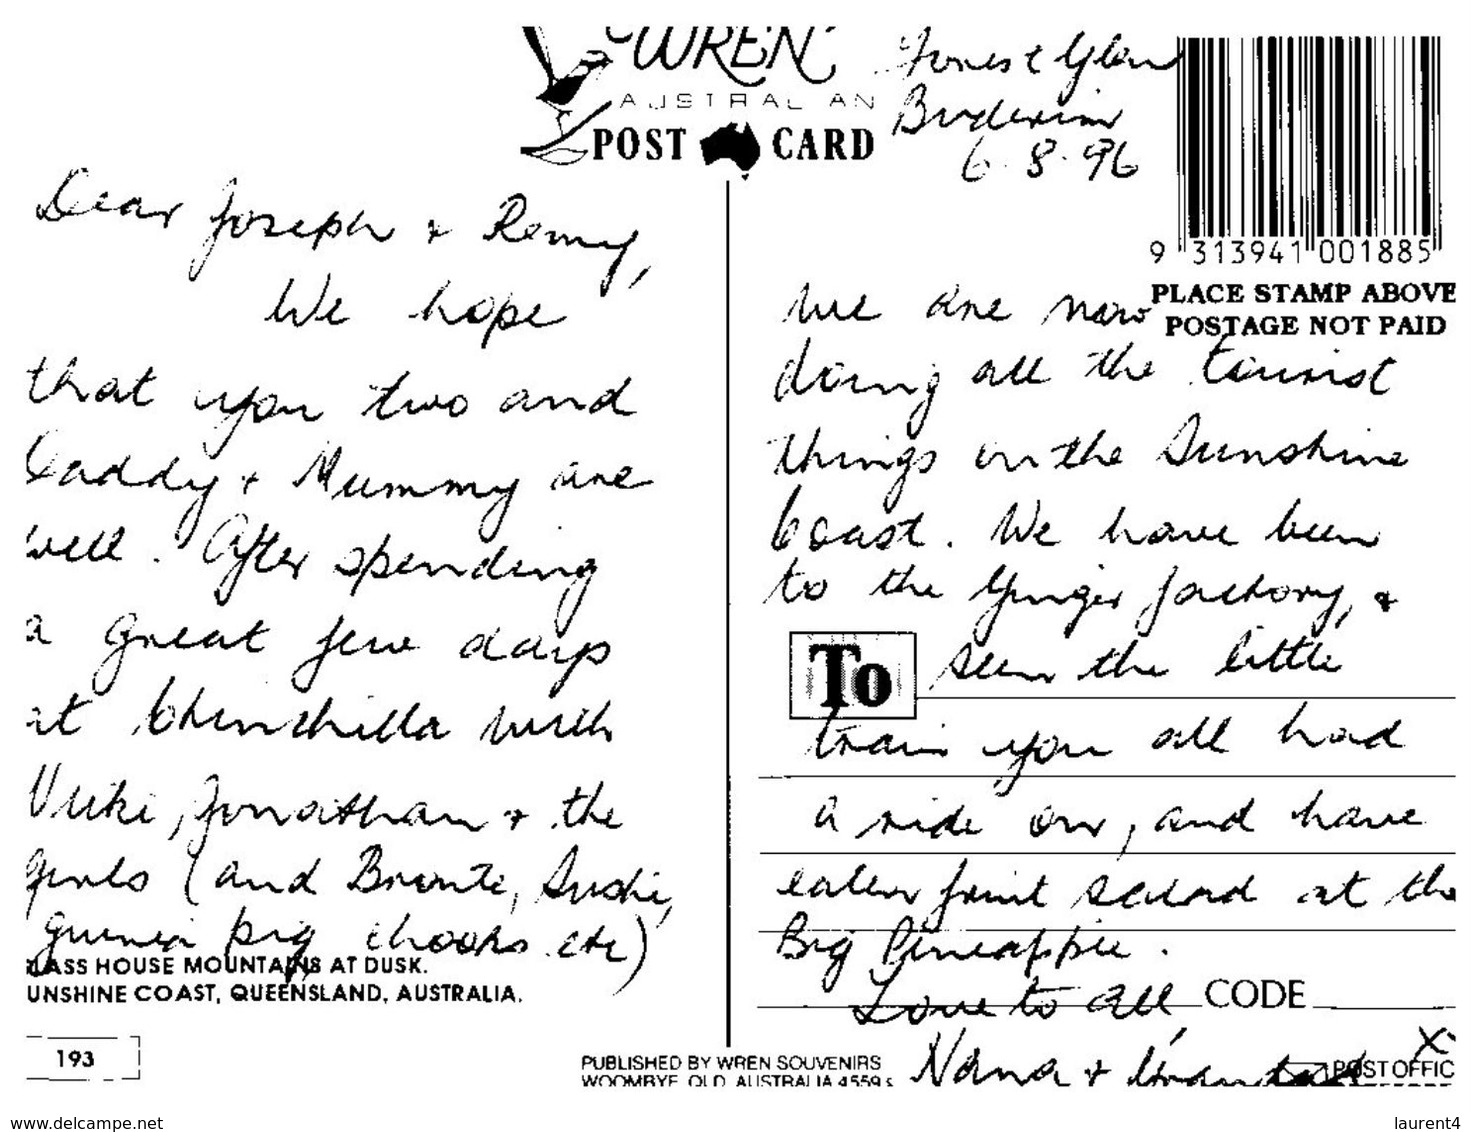 WREN
AUSTRALIAN
POST CARD
Forest Glen
Buderim
6.8.96
9 313941 001885
PLACE STAMP ABOVE
POSTAGE NOT PAID
Dear Joseph + Remy,
We hope
that you two and
Daddy + Mummy are
well. After spending
a great few days
at Chinchilla with
Vicki, Jonathan + the
girls (and Bronte, Sushi,
guinea pig, chooks etc)
LASS HOUSE MOUNTAINS AT DUSK.
UNSHINE COAST, QUEENSLAND, AUSTRALIA.
193
we are now
doing all the tourist
things on the Sunshine
Coast. We have been
to the Ginger factory, +
To
seen the little
train you all had
a ride on, and have
eaten fruit salad at the
Big Pineapple.
Love to all
CODE
Nana + Grandad
X
POST OFFIC
PUBLISHED BY WREN SOUVENIRS
WOOMBYE QLD AUSTRALIA 4559
www.delcampe.net
laurent4